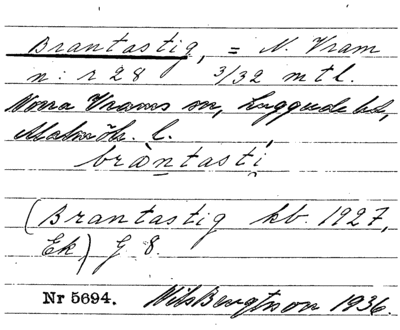 Brantastig, = N. Vram
n: r 28 3/32 mtl.
Norra Vrams sn, Luggude hd,
Malmöh. l.
brántasti
(Brantastig kb. 1927,
Ek) G 8.
Nr 5694. Nils Bengtsson 1936.